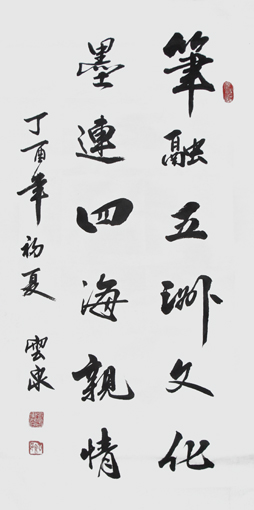 筆融五洲文化
墨連四海親情
丁酉年初夏 雲泉